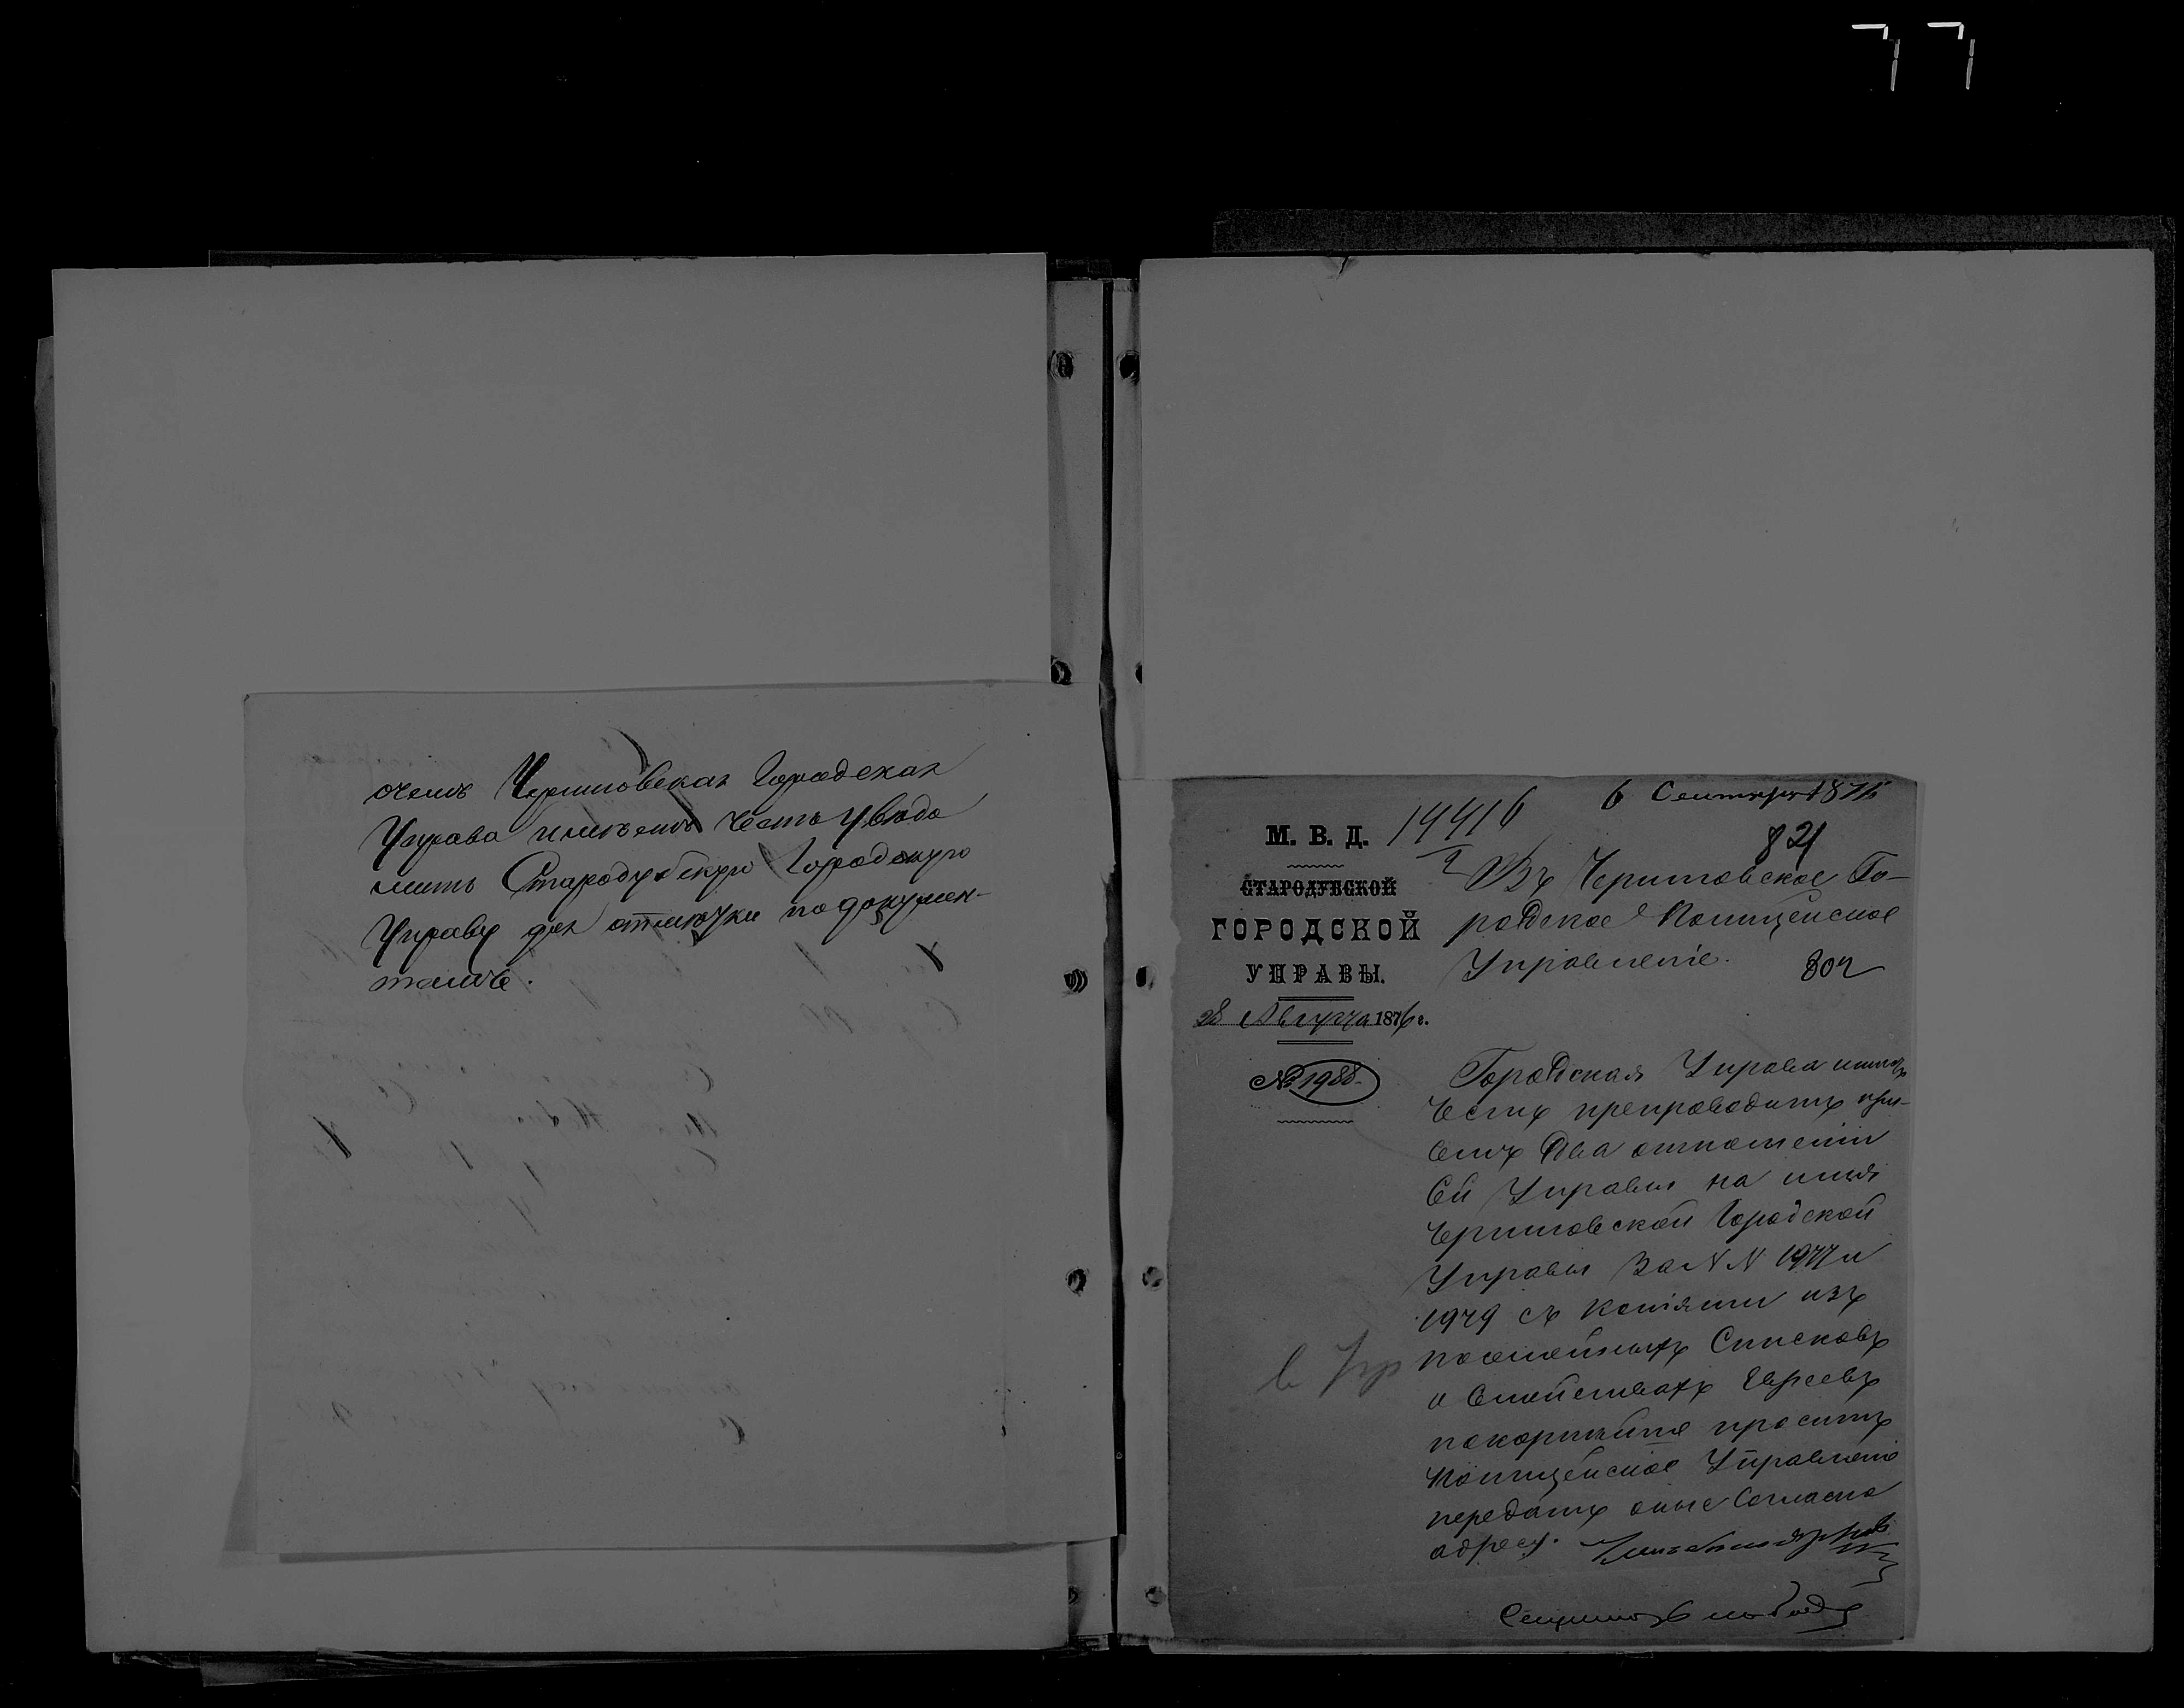 77
очемъ Черниговская Городская
Управа имѣетъ честь увѣдо
мить Стародубскую Городскую
Управу для отмѣтки по докумен-
тамъ.
6 Сентября 1876
14416
М. В. Д.
821
СТАРОДУБСКОЙ
ГОРОДСКОЙ
УПРАВЫ.
28 Августа 1876 г.
№ 1988.
Въ Черниговское Го-
родское Полицейское
Управленіе.
Городская Управа имѣетъ
честь препроводить при
семъ два отношенія
сей Управы на имя
Черниговской Городской
Управы за NN 1977 и
1979 съ копіями изъ
посемейныхъ списковъ
о семействахъ Евреевъ
покорнѣйше проситъ
Полицейское Управленіе
передать оные согласно
адресу.